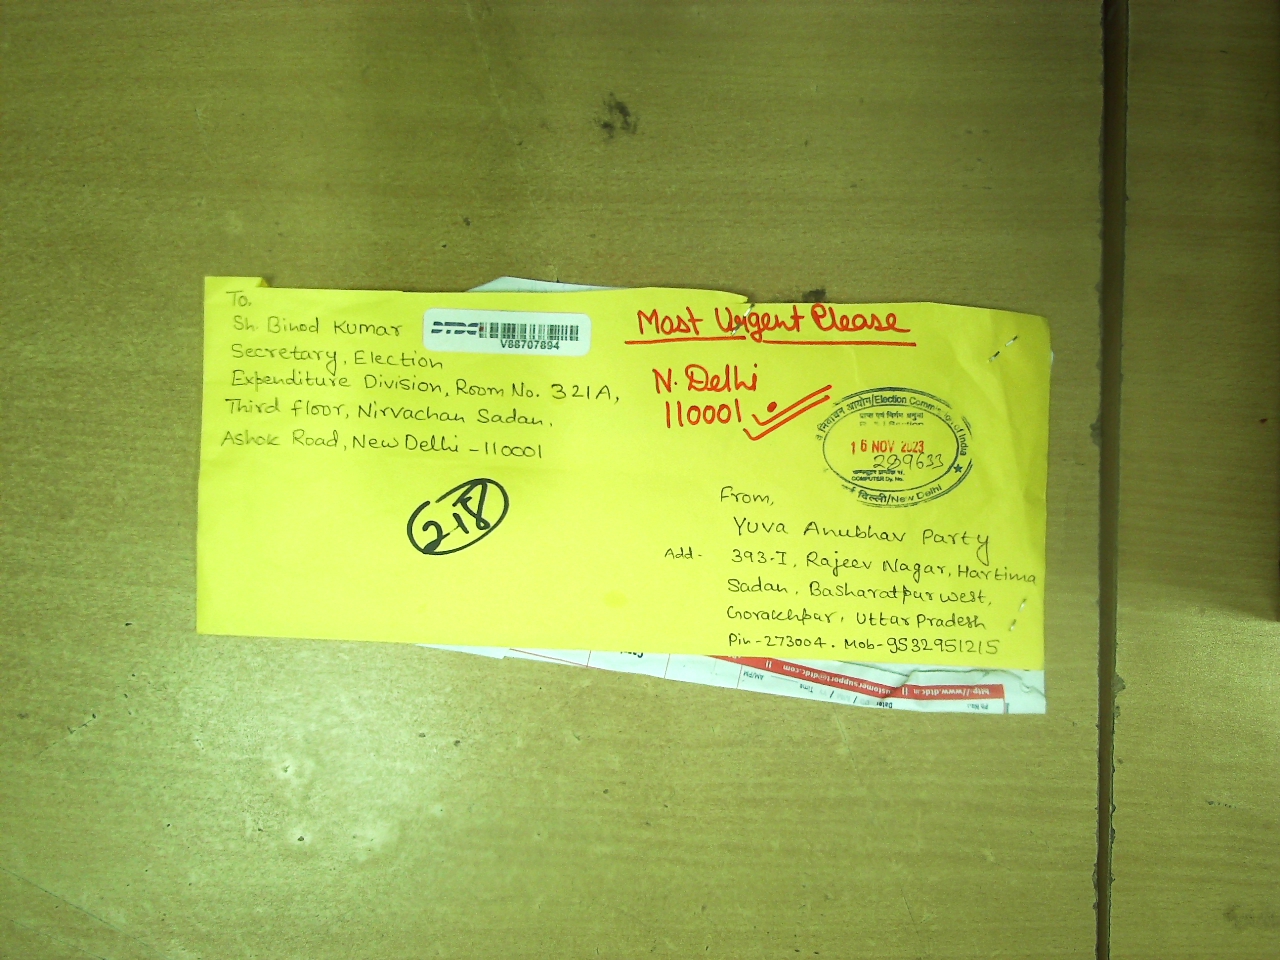 To,
Sh. Binod Kumar
Secretary, Election
Expenditure Division, Room No. 321A,
Third floor, Nirvachan Sadan,
Ashok Road, New Delhi - 110001
DTDC
V88707894
Most Urgent Please
N. Delhi
110001
218
निर्वाचन आयोग/Election Commission of India
16 NOV 2023
289633
COMPUTER Dy. No.
नई दिल्ली/New Delhi
From,
Yuva Anubhav Party
Add- 393-I, Rajeev Nagar, Hartima
Sadan, Basharatpur west,
Gorakhpur, Uttar Pradesh
Pin-273004. Mob-9532951215
customersupport@dtdc.com || http://www.dtdc.in ||
AM/PM
Time
Date: